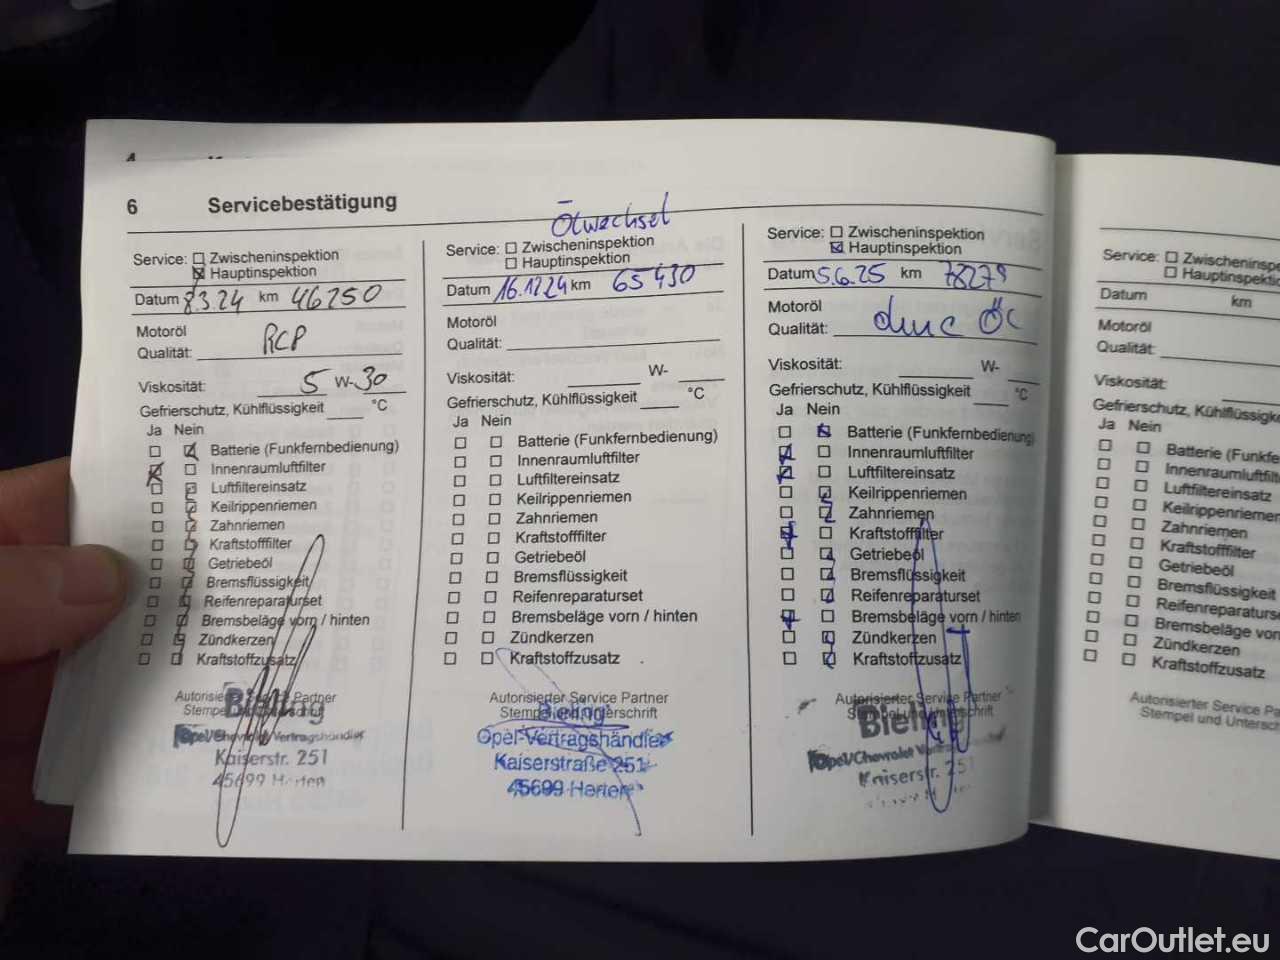 6 Servicebestätigung
Service: Zwischeninspektion
Hauptinspektion
Datum 8.3.24 km 46250
Motoröl
Qualität:
Viskosität: 5 W-30
Gefrierschutz, Kühlflüssigkeit °C
Ja Nein
Batterie (Funkfernbedienung)
Innenraumluftfilter
Luftfiltereinsatz
Keilrippenriemen
Zahnriemen
Kraftstofffilter
Getriebeöl
Bremsflüssigkeit
Reifenreparaturset
Bremsbeläge vorn / hinten
Zündkerzen
Kraftstoffzusatz
Autorisierter Service Partner
Stempel und Unterschrift
Bieling
Opel/Chevrolet Vertragshändler
Kaiserstr. 251
45699 Herten
Ölwechsel
Service: Zwischeninspektion
Hauptinspektion
Datum 16.12.24 km 65430
Motoröl
Qualität:
Viskosität: W-
Gefrierschutz, Kühlflüssigkeit °C
Ja Nein
Batterie (Funkfernbedienung)
Innenraumluftfilter
Luftfiltereinsatz
Keilrippenriemen
Zahnriemen
Kraftstofffilter
Getriebeöl
Bremsflüssigkeit
Reifenreparaturset
Bremsbeläge vorn / hinten
Zündkerzen
Kraftstoffzusatz
Autorisierter Service Partner
Stempel und Unterschrift
Bieling
Opel-Vertragshändler
Kaiserstraße 251
45699 Herten
Service: Zwischeninspektion
Hauptinspektion
Datum 5.6.25 km 78279
Motoröl
Qualität: ohne Öl
Viskosität: W-
Gefrierschutz, Kühlflüssigkeit °C
Ja Nein
Batterie (Funkfernbedienung)
Innenraumluftfilter
Luftfiltereinsatz
Keilrippenriemen
Zahnriemen
Kraftstofffilter
Getriebeöl
Bremsflüssigkeit
Reifenreparaturset
Bremsbeläge vorn / hinten
Zündkerzen
Kraftstoffzusatz
Autorisierter Service Partner
Stempel und Unterschrift
Bieling
Opel/Chevrolet
Kaiserstr. 251
Service: Zwischeninspe
Hauptinspekti
Datum km
Motoröl
Qualität:
Viskosität:
Gefrierschutz, Kühlflüssigke
Ja Nein
Batterie (Funkfe
Innenraumluftfil
Luftfiltereinsatz
Keilrippenrieme
Zahnriemen
Kraftstofffilter
Getriebeöl
Bremsflüssigkeit
Reifenreparatur
Bremsbeläge vo
Zündkerzen
Kraftstoffzusatz
Autorisierter Service Pa
Stempel und Untersch
CarOutlet.eu